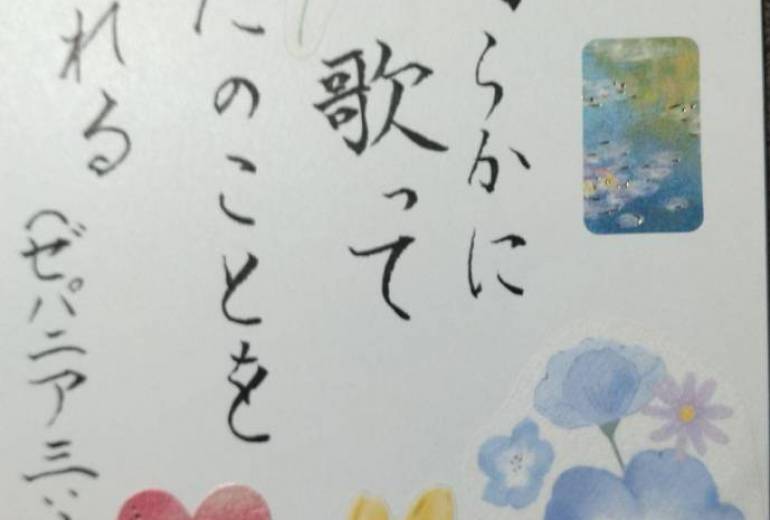 らかに
歌って
たのことを
れる（ゼパニア三：